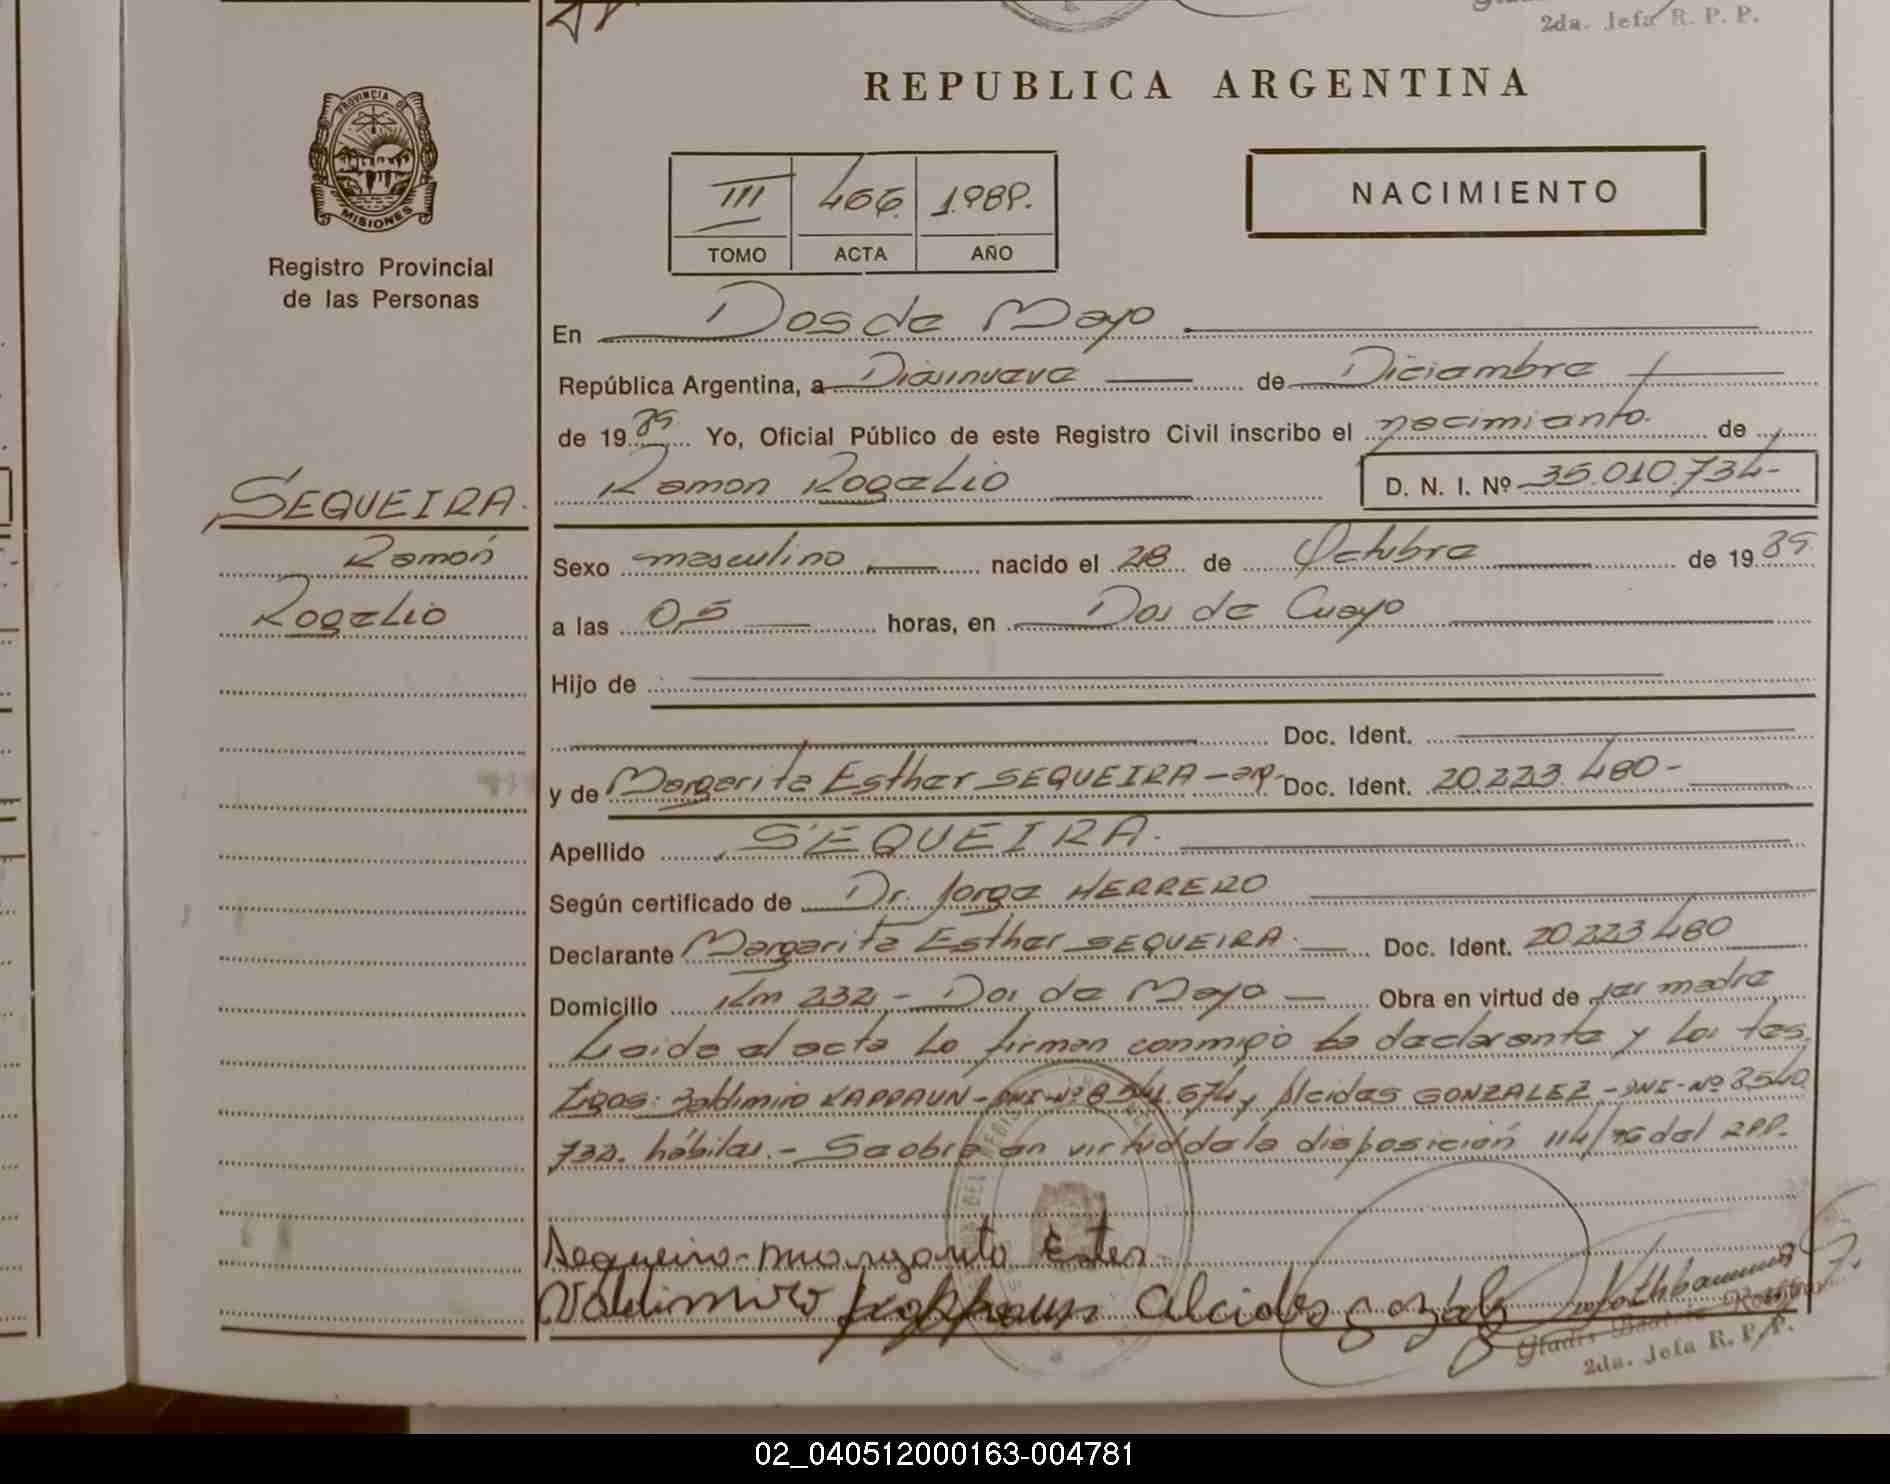 2da. Jefa R. P. P.
REPUBLICA ARGENTINA
PROVINCIA DE
MISIONES
Registro Provincial
de las Personas
III 406. 1.989.
TOMO ACTA AÑO
NACIMIENTO
En Dos de Mayo
República Argentina, a Diecinueve de Diciembre
de 1989. Yo, Oficial Público de este Registro Civil inscribo el nacimiento de
Ramon Rogelio D. N. I. Nº 35.010.734-
SEQUEIRA.
Ramón
Rogelio
Sexo masculino nacido el 28 de Octubre de 1989.
a las 05 horas, en Dos de Mayo
Hijo de
Doc. Ident.
y de Margarita Esther SEQUEIRA - arg- Doc. Ident. 20.223.480-
Apellido SEQUEIRA.
Según certificado de Dr. Jorge HERRERO
Declarante Margarita Esther SEQUEIRA. Doc. Ident. 20.223.480
Domicilio Km 232 - Dos de Mayo Obra en virtud de ser madre
Leida el acta lo firman conmigo la declarante y los tes
tigos: Baldimiro KAPPAUN - DNI-Nº 8.541.674 y Alcides GONZALEZ - DNI-Nº 8.540.
732. hábiles. - Se obra en virtud de la disposición 114/76 del RPP.
Sequeira margarita Ester
Valdimiro Kappaun Alcides gonzalez
Gladis Beatriz
2da. Jefa R. P. P.
02_040512000163-004781